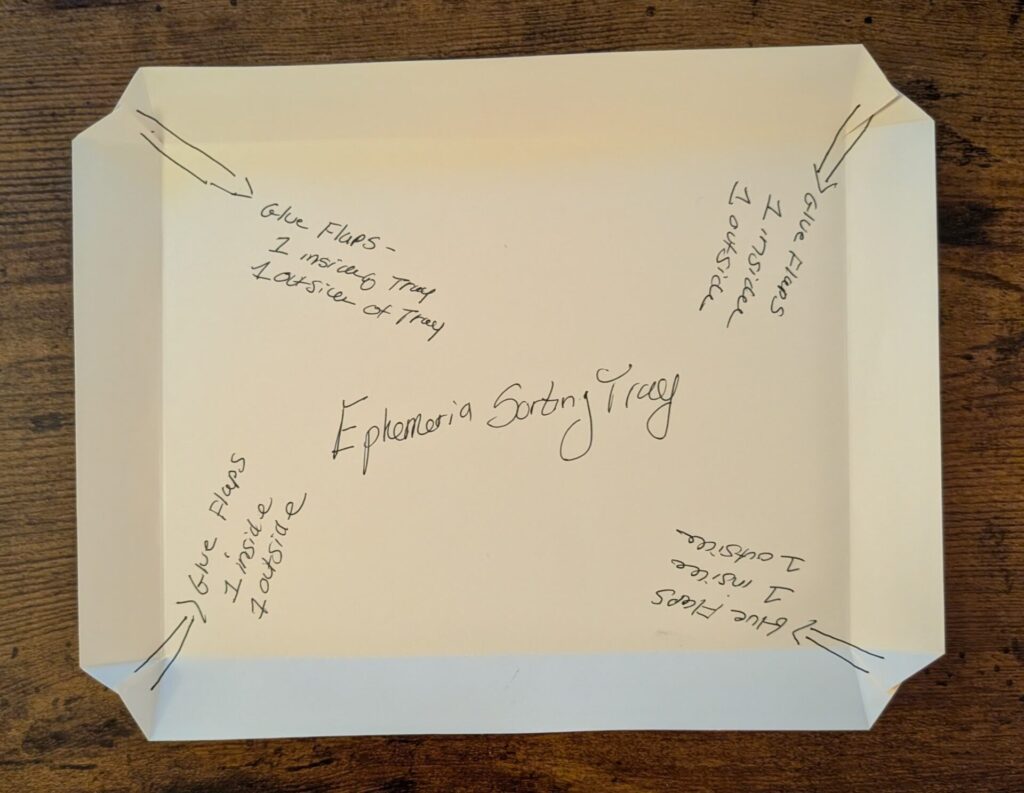 Glue Flaps -
1 inside of Tray
1 outside of Tray
Glue Flaps
1 inside
1 outside
Ephemeria Sorting Tray
Glue Flaps
1 inside
1 outside
Glue Flaps
1 inside
1 outside